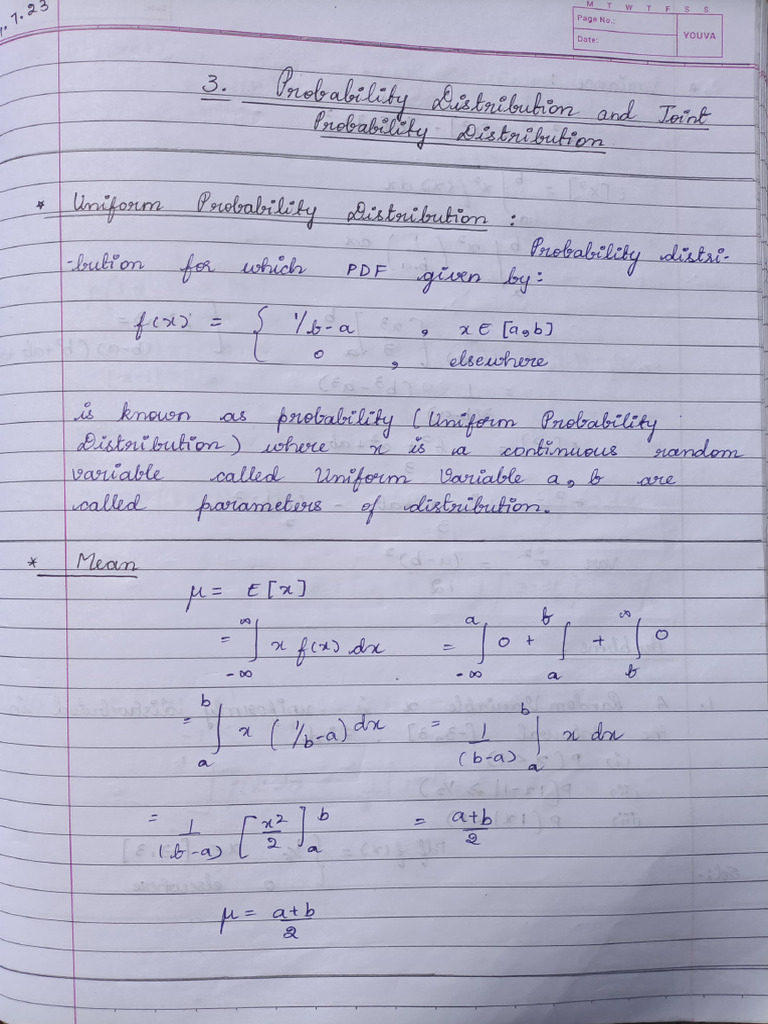 .7.23
M T W T F S S
Page No.:
Date:
YOUVA
3. Probability Distribution and Joint
Probability Distribution
* Uniform Probability Distribution :
Probability distri-
-bution for which PDF given by:
f(x) = { 1/b-a , x ∈ [a,b]
0 , elsewhere
is known as probability (Uniform Probability
Distribution) where x is a continuous random
variable called Uniform Variable a, b are
called parameters of distribution.
* Mean
μ = E[x]
= ∫_{-∞}^{∞} x f(x) dx = ∫_{-∞}^{a} 0 + ∫_{a}^{b} + ∫_{b}^{∞} 0
= ∫_{a}^{b} x (1/b-a) dx = 1/(b-a) ∫_{a}^{b} x dx
= 1/(b-a) [x²/2]_{a}^{b} = a+b/2
μ = a+b/2